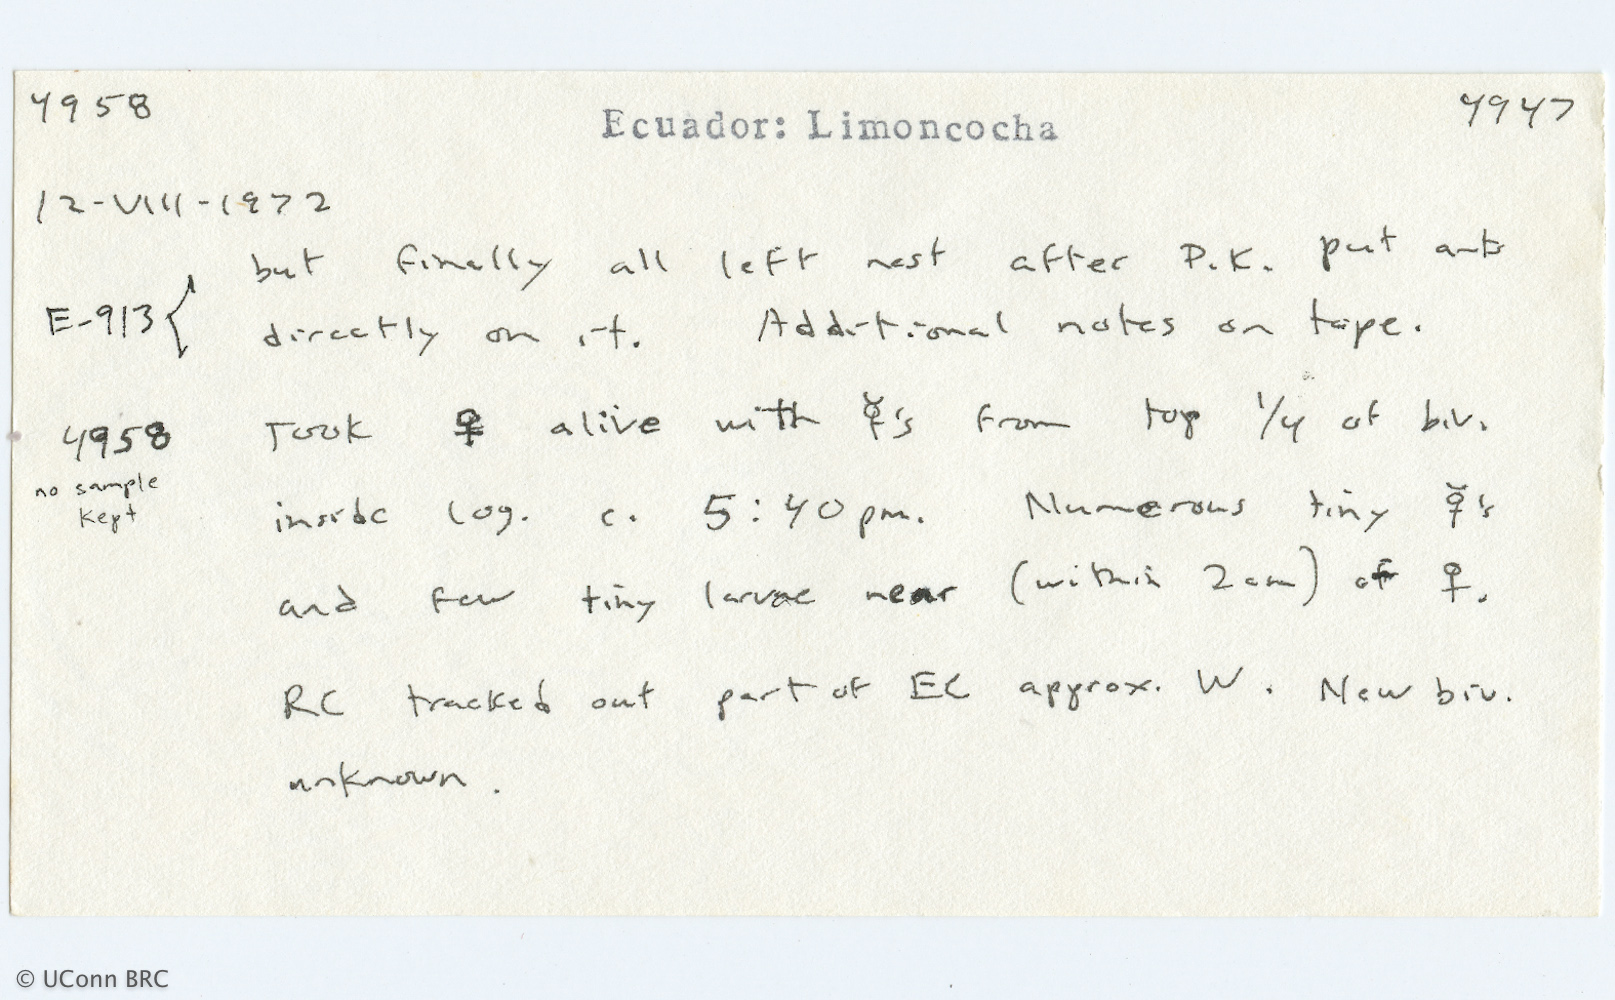 4958 Ecuador: Limoncocha 4947
12-VIII-1972
but finally all left nest after P.K. put ants
E-913 { directly on it. Additional notes on tape.
4958 Took ♀ alive with ☿'s from top 1/4 of biv.
no sample
kept
inside log. c. 5:40 pm. Numerous tiny ☿'s
and few tiny larvae near (within 2cm) of ♀.
RC tracked out part of EC approx. W. New biv.
unknown.
© UConn BRC